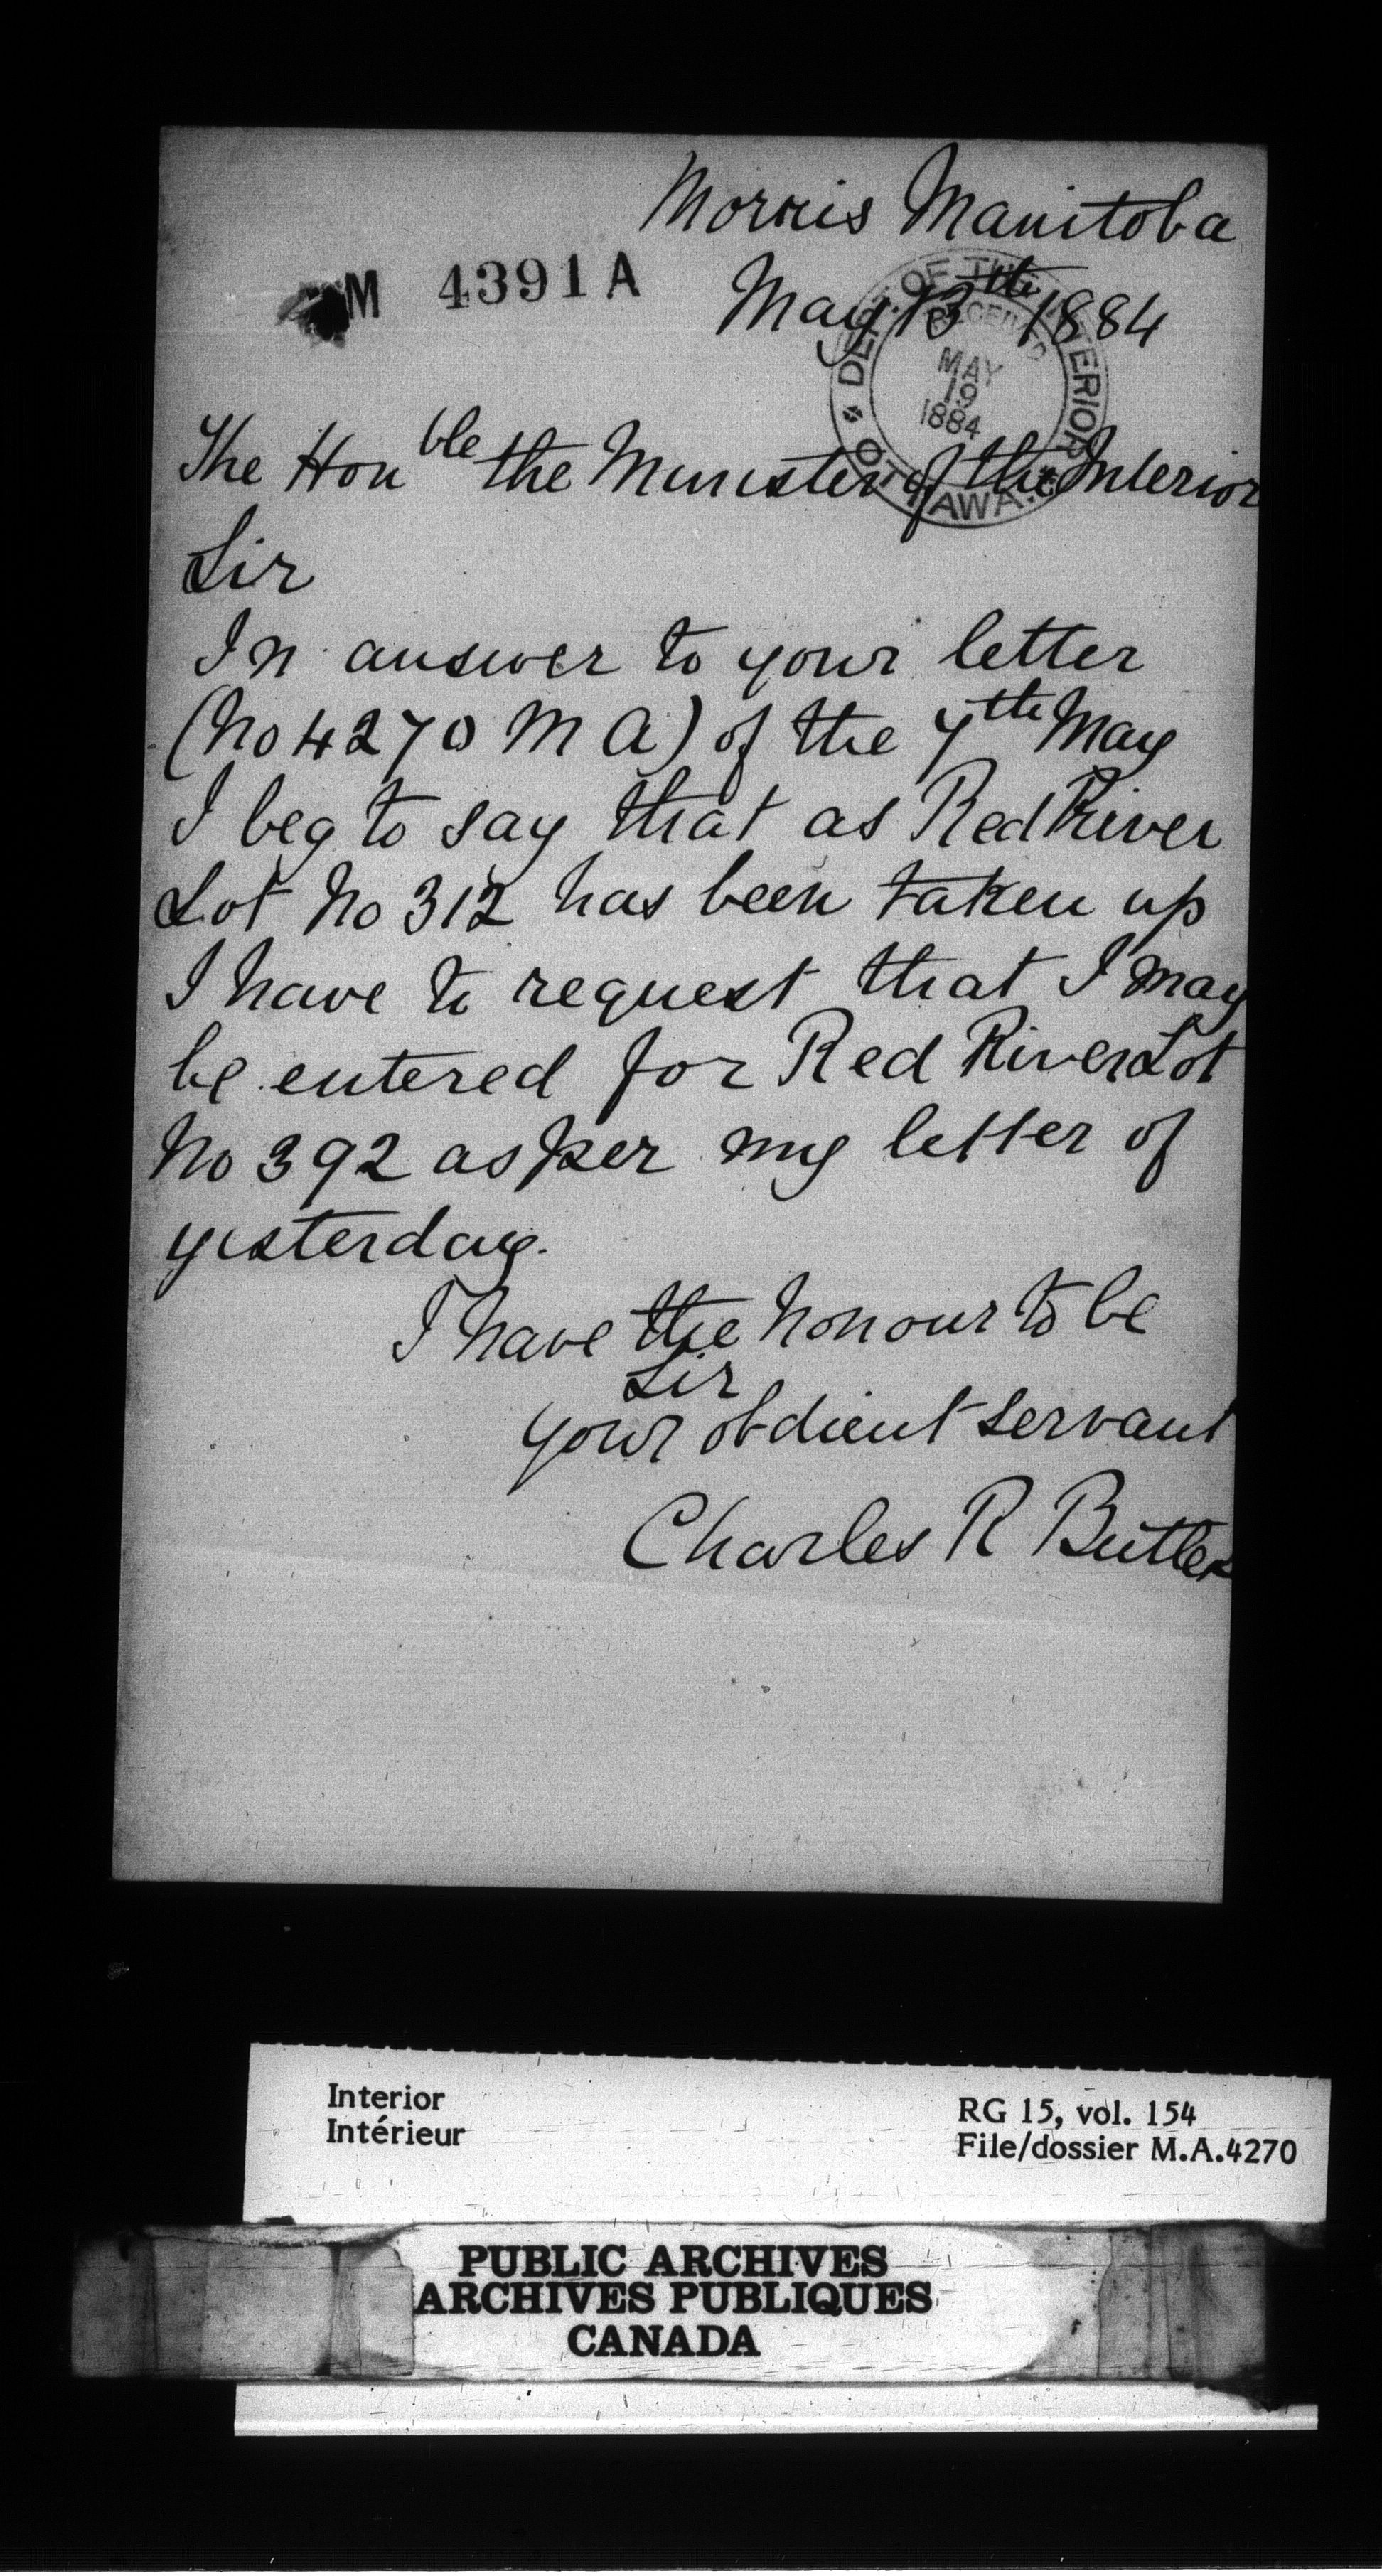 Morris Manitoba
M 4391 A
May 13th 1884
DEPT. OF THE INTERIOR
RECEIVED
MAY
19
1884
OTTAWA.
The Honble the Minister of the Interior
Sir
In answer to your letter
(No 4270 M A) of the 7th May
I beg to say that as Red River
Lot No 312 has been taken up
I have to request that I may
be entered for Red River Lot
No 392 as per my letter of
yesterday.
I have the honour to be
Sir
your obdient servant
Charles R Butler
Interior
Intérieur
RG 15, vol. 154
File/dossier M.A.4270
PUBLIC ARCHIVES
ARCHIVES PUBLIQUES
CANADA